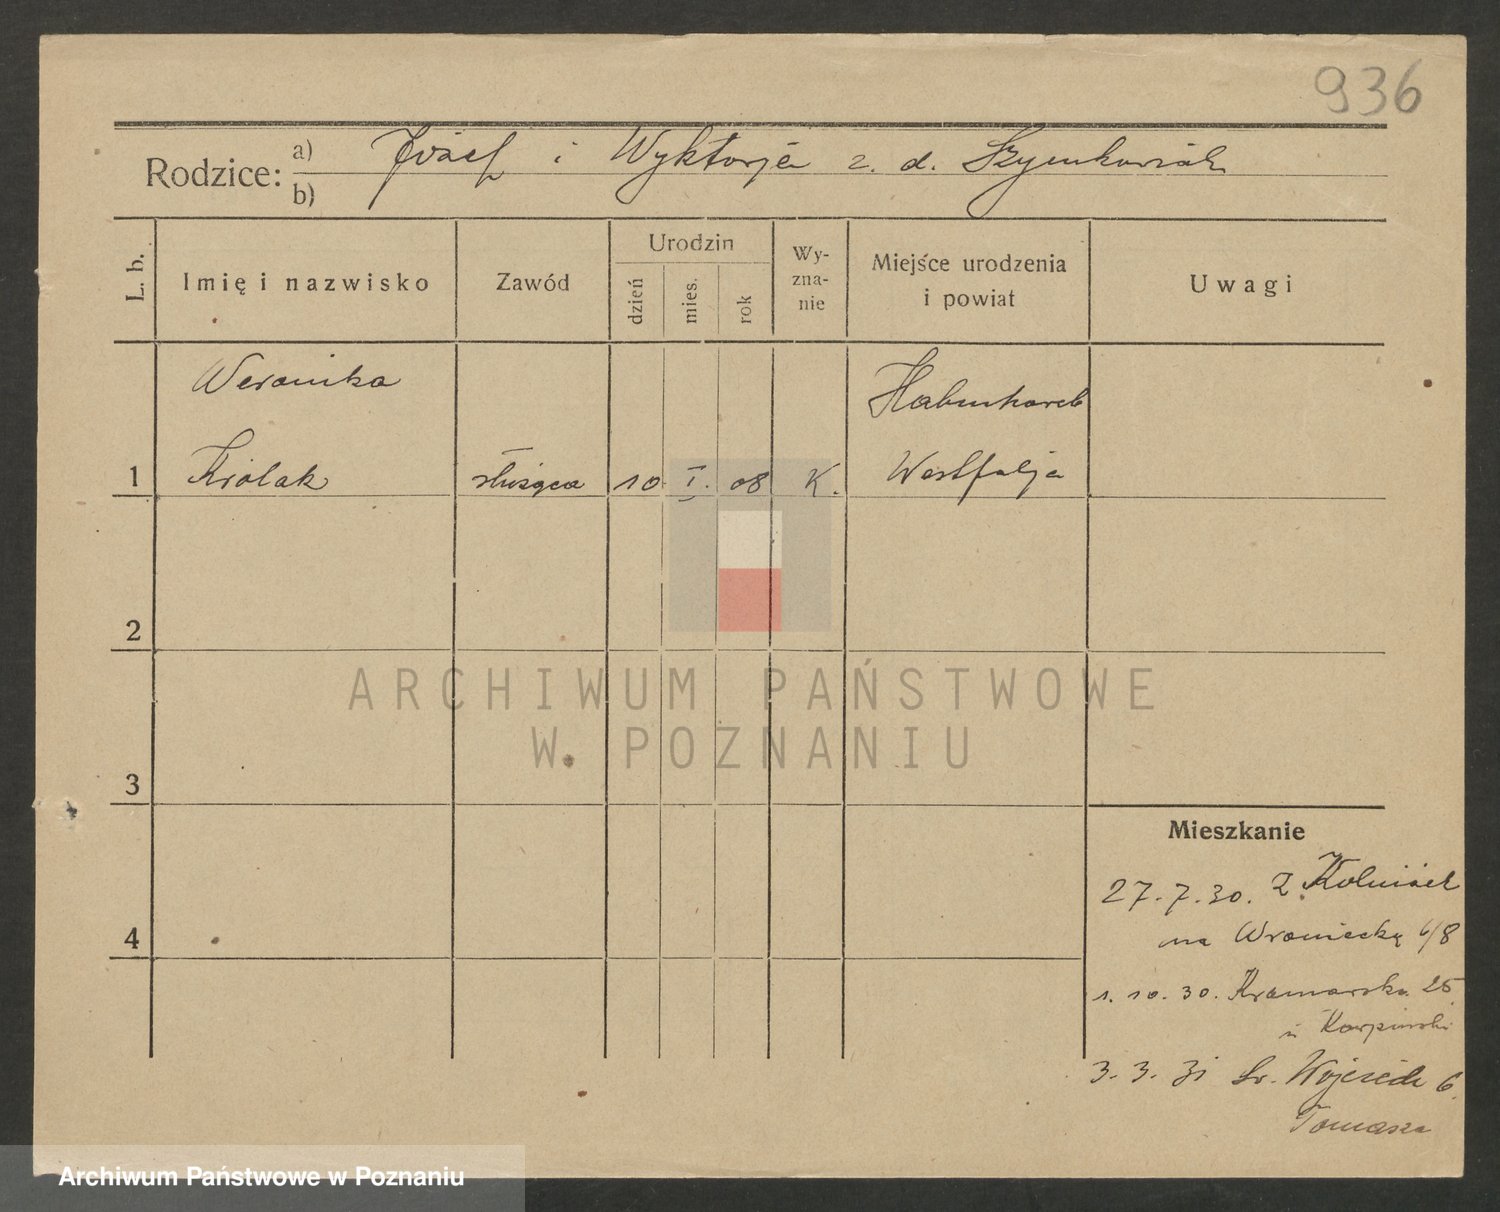 936
Rodzice: a) Józef i Wyktorja z. d. Szymkowiak
b)
L. b.
Imię i nazwisko
Zawód
Urodzin
dzień
mies.
rok
Wy-
zna-
nie
Miejsce urodzenia
i powiat
Uwagi
Weronika
1 Królak służąca 10. I. 08 K. Westfalja
2
ARCHIWUM PAŃSTWOWE
W POZNANIU
3
Mieszkanie
27. 7. 30. z
4
na Wroniecką 6/8
1. 10. 30. Kramarska 25
u Karpiński
3. 3. 31 Św. Wojciech 6
Tomasza
Archiwum Państwowe w Poznaniu